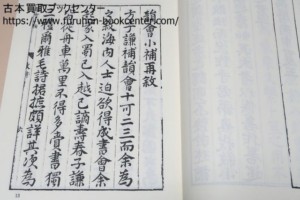 古本買取ブックセンター
https://www.furuhon-bookcenter.com/
韻會小補再敘
方子謙補韻會十可二三而余為
之敘海内人士迫欲得成書會余
家入蜀已入越已謫壽春子謙
從舟車萬里不得多賫書獨
禮爾雅毛詩捃摭頗詳其次為